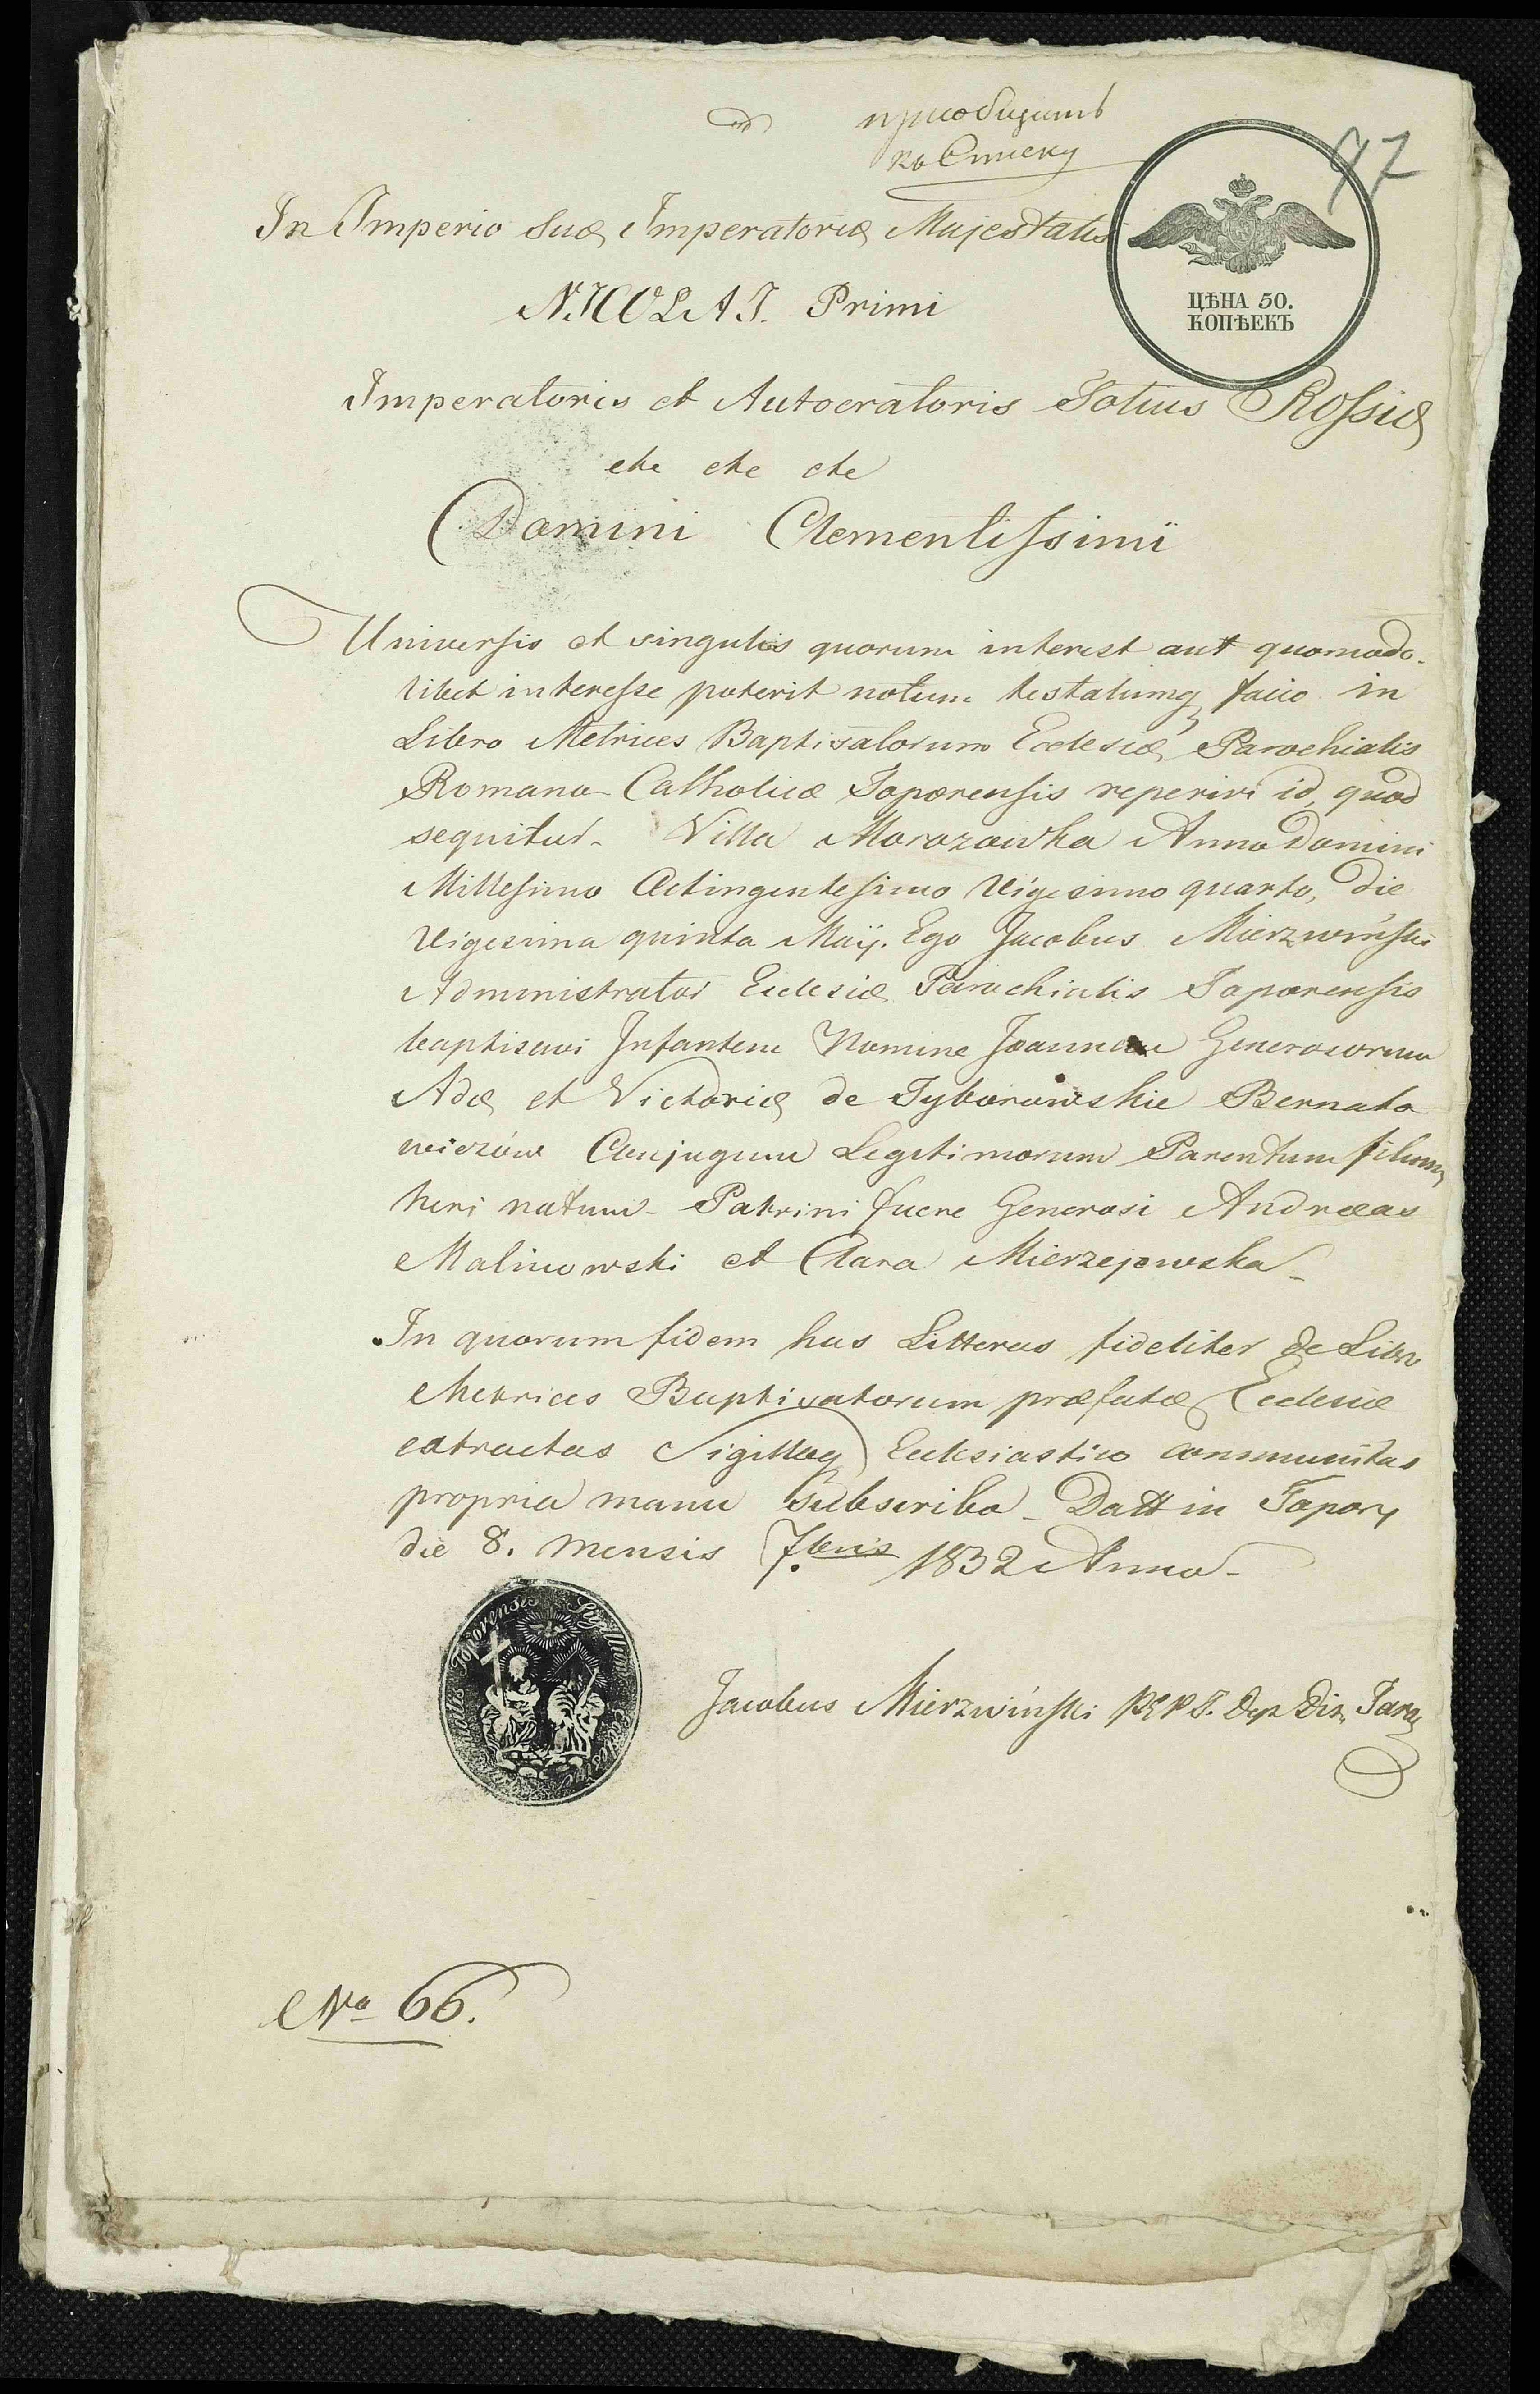 приобщить
къ Списку
77
In Imperio Suæ Imperatoriæ Majestatis
NICOLAI. Primi
ЦѢНА 50.
КОПѢЕКЪ
Imperatoris et Autocratoris Totius Rossiæ
etc etc etc
Domini Clementissimi
Universis et singulis quorum interest aut quomodo-
libet interesse poterit notum testatumq facio in
Libro Metrices Baptisatorum Eclesiæ Parochialis
Romano-Catholicæ Toporensis reperiri id, quod
sequitur- Villa Morozowka Anno Domini
Millesimo Octingentesimo Vigesimo quarto, Die
Vigesima quinta Maij. Ego Jacobus Mierzwiński
Administrator Eclesiæ Parochialis Toporensis
baptisavi Infantem Nomine Joannem Generosorum
Adæ et Victoriæ de Tyborowskie Bernato
wiczów Conjugum Legitimorum Parentum filium
heri natum- Patrini fuere Generosi Andreas
Malinowski et Clara Mierzejowska-
In quorum fidem has Litteras fideliter de Libro
Metrices Baptisatorum præfatæ Eclesiæ
extractas Sigilloq Eclesiastico communitas
propria manu subscribo- Datt in Topory
die 8. mensis 7bris 1832 Anno-
Toporensis Sigillum
Jacobus Mierzwiński
No 66.